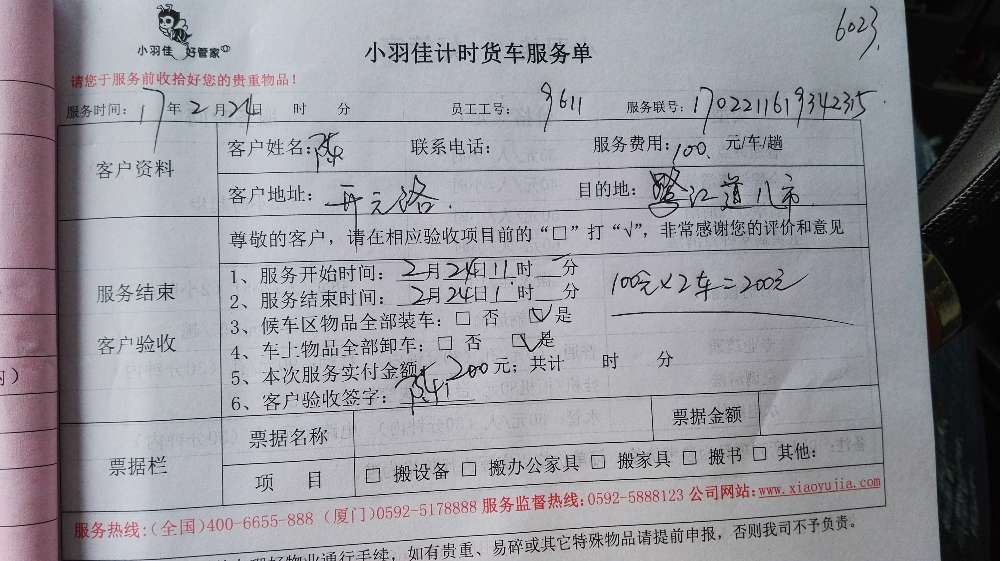 6023
小羽佳 好管家
小羽佳计时货车服务单
请您于服务前收拾好您的贵重物品！
服务时间：17年2月24日 时 分 员工工号：9611 服务联号：1702211619342315
客户资料
客户姓名：陈 联系电话： 服务费用：100 元/车/趟
客户地址：开元路 目的地：鹭江道八市
服务结束
客户验收
尊敬的客户，请在相应验收项目前的“□”打“√”，非常感谢您的评价和意见
1、服务开始时间：2月24日11时 分
2、服务结束时间：2月24日1时 分
100元×2车=200元
3、候车区物品全部装车：□ 否 ☑是
4、车上物品全部卸车：□ 否 ☑是
5、本次服务实付金额：200元；共计 时 分
6、客户验收签字：陈
票据栏
票据名称 票据金额
项 目 □ 搬设备 □ 搬办公家具 □ 搬家具 □ 搬书 □ 其他：
服务热线：（全国）400-6655-888（厦门）0592-5178888 服务监督热线：0592-5888123 公司网站：www.xiaoyujia.com
物业通行手续，如有贵重、易碎或其它特殊物品请提前申报，否则我司不予负责。